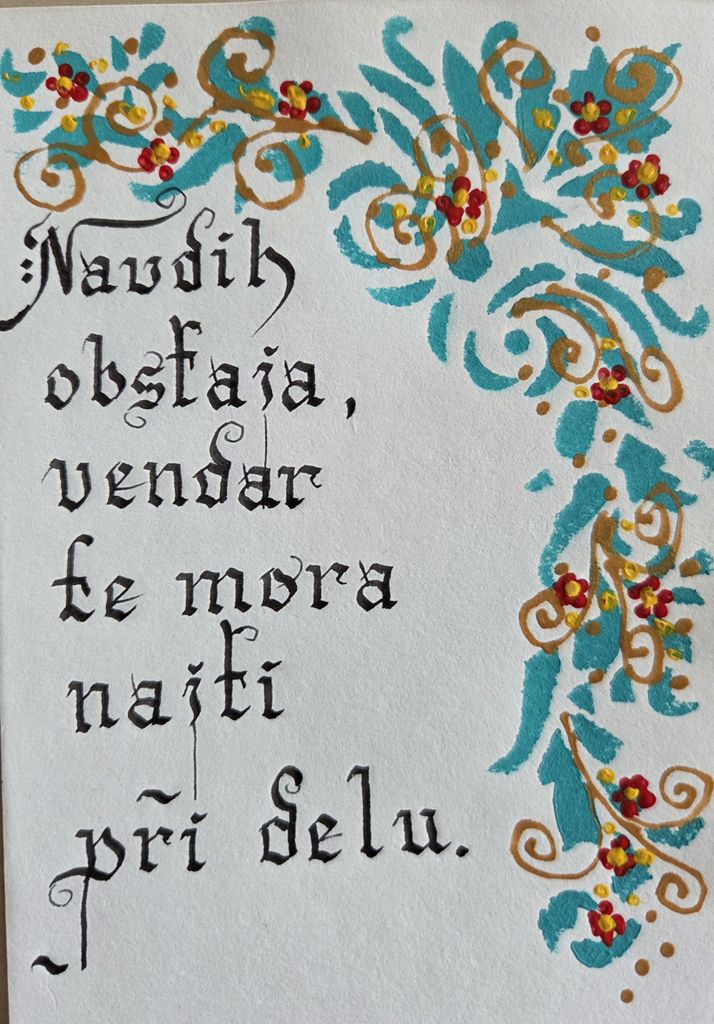 Navdih
obstaja,
vendar
te mora
najti
pri delu.